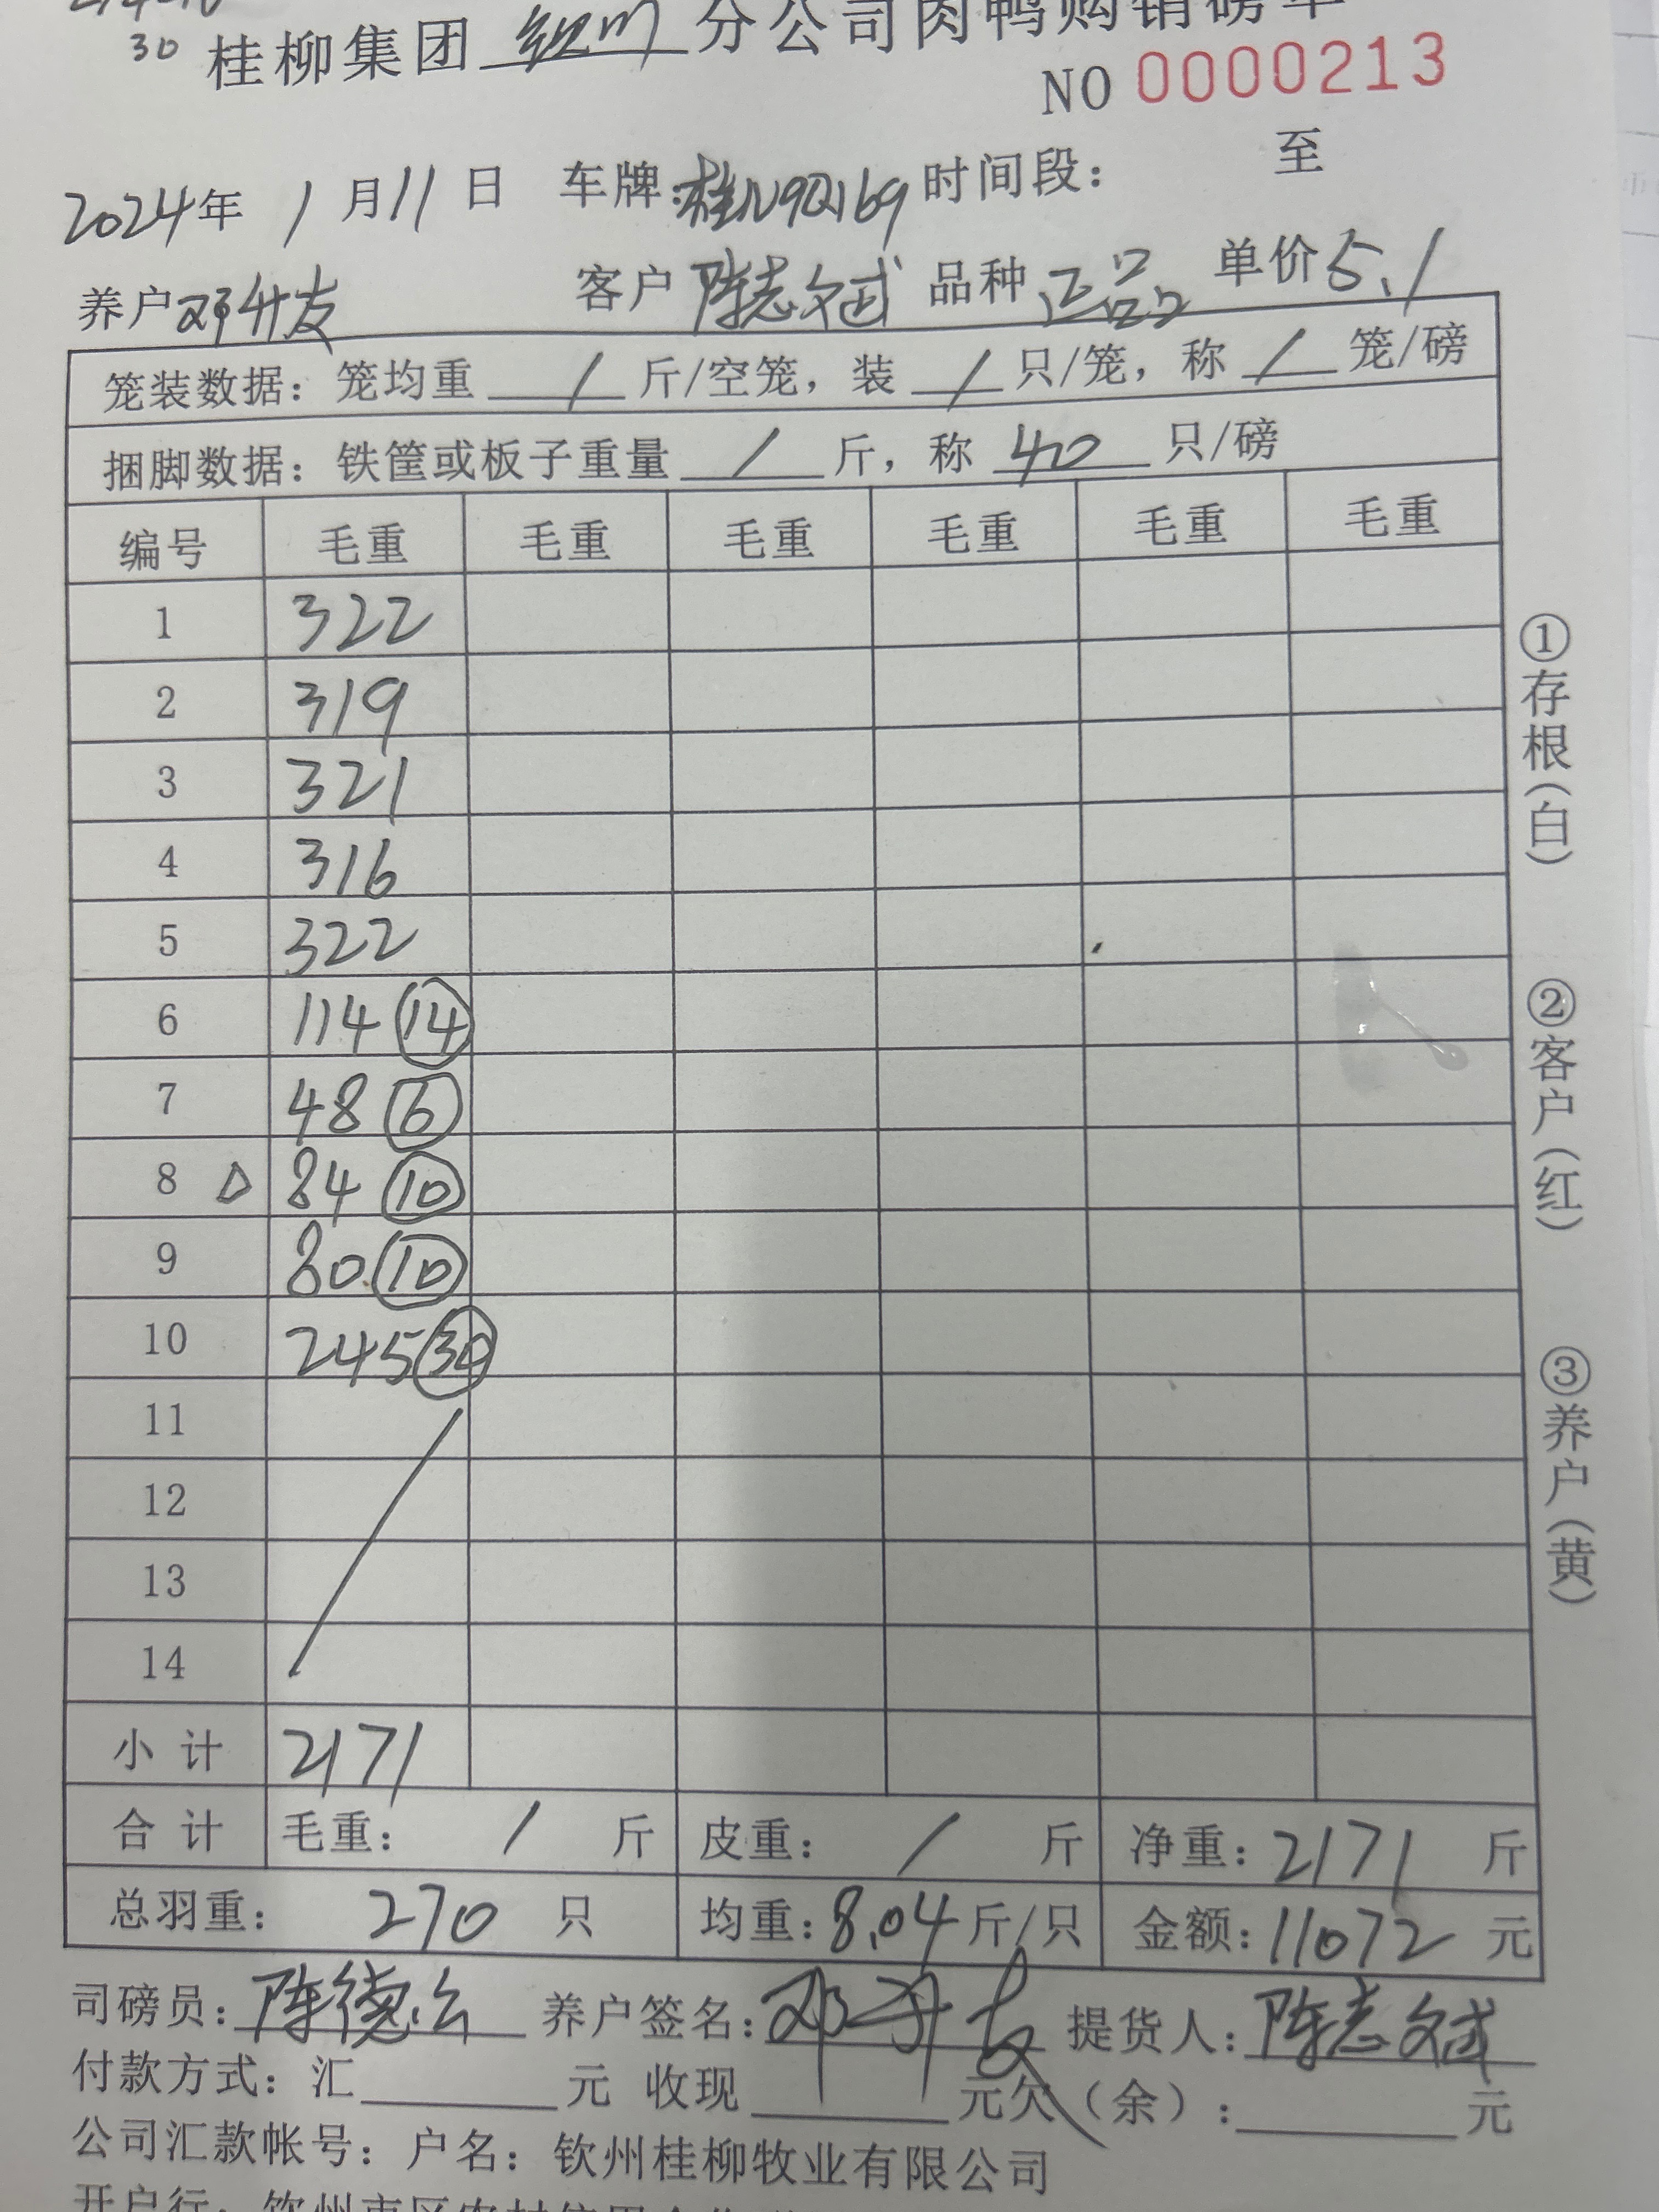 30 桂柳集团 分公司肉鸭购销磅单
NO 0000213
2024年 1月11日 车牌:桂N9Q169 时间段: 至
养户 邓升友 客户 陈志斌 品种 正品 单价5.1
笼装数据: 笼均重 / 斤/空笼, 装 / 只/笼, 称 / 笼/磅
捆脚数据: 铁筐或板子重量 / 斤, 称 40 只/磅
编号 毛重 毛重 毛重 毛重 毛重 毛重
1 322
2 319
3 321
4 316
5 322
6 114 14
7 48 6
8 △ 84 10
9 80 10
10 245 30
11
12
13
14
小计 2171
合计 毛重: / 斤 皮重: / 斤 净重: 2171 斤
总羽重: 270 只 均重: 8.04 斤/只 金额: 11072 元
①存根(白)
②客户(红)
③养户(黄)
司磅员: 陈德 养户签名: 邓升友 提货人: 陈志斌
付款方式: 汇 元 收现 元欠(余): 元
公司汇款帐号: 户名: 钦州桂柳牧业有限公司